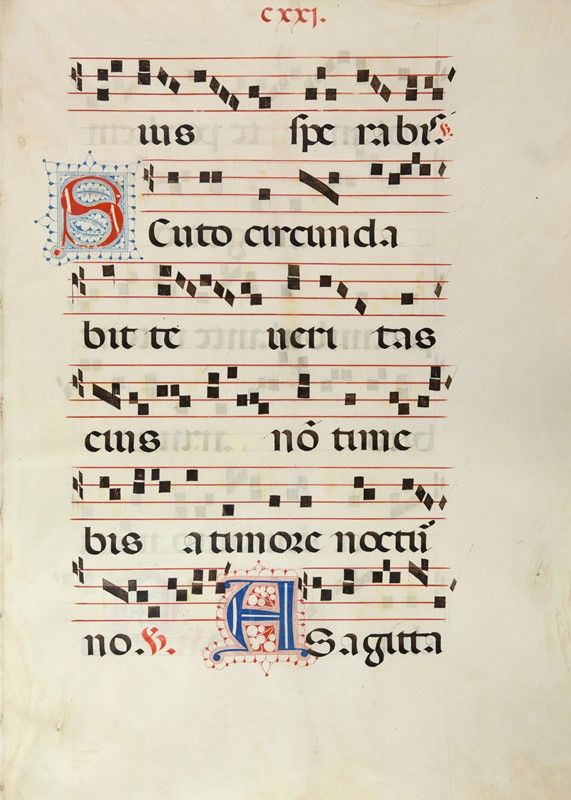 cxxj.
ius spe rabis. V.
SCuto circunda
bit te ueri tas
eius nō time
bis a timore noctū
no. V. A Sagitta